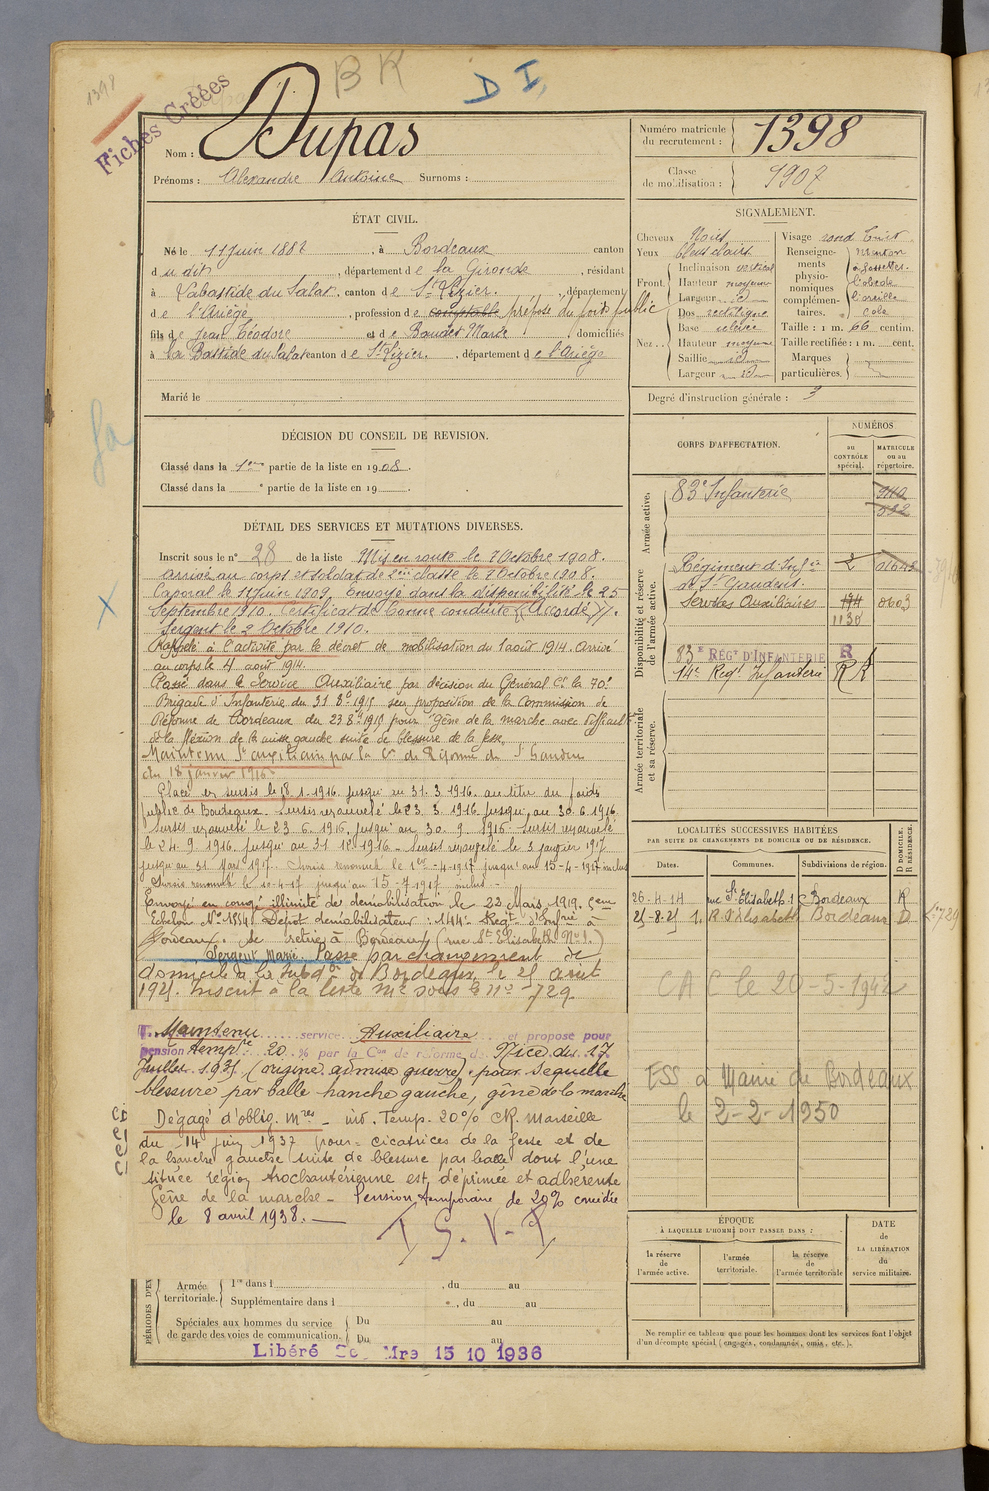 1398
Fiches Créées
BK
D I,
Nom : Dupas
Prénoms : Alexandre Antoine Surnoms :
Numéro matricule du recrutement : 1398
Classe de mobilisation : 1902
ÉTAT CIVIL.
Né le 11 Juin 1882, à Bordeaux canton
du dit, département de la Gironde, résidant
à Labastide du Salat, canton de St Lizier, département
de l'Ariège, profession de comptable préposé du poids public
fils de Jean Théodore et de Baudet Marie domiciliés
à La Bastide du Salat canton de St Lizier, département de l'Ariège
Marié le
SIGNALEMENT.
Cheveux Noirs
Yeux bleus clairs
Front Inclinaison vertical
Hauteur moyenne
Largeur d°
Nez Dos rectiligne
Base relevée
Hauteur moyenne
Saillie d°
Largeur d°
Visage rond
Renseignements physionomiques complémentaires. menton à fossettes. lobe de l'oreille
Taille : 1 m. 66 centim.
Taille rectifiée : 1 m. cent.
Marques particulières.
Degré d'instruction générale : 3
DÉCISION DU CONSEIL DE REVISION.
Classé dans la 1ère partie de la liste en 1908.
Classé dans la e partie de la liste en 19 .
DÉTAIL DES SERVICES ET MUTATIONS DIVERSES.
Inscrit sous le n° 28 de la liste Mis en route le 7 Octobre 1908.
Arrivé au corps et soldat de 2ème classe le 7 Octobre 1908.
Caporal le 11 Juin 1909. Envoyé dans la disponibilité le 25
Septembre 1910. Certificat de bonne conduite "Accordé".
Sergent le 2 Octobre 1910.
Rappelé à l'activité par le décret de mobilisation du 1 août 1914. Arrivé
au corps le 4 août 1914.
Passé dans le Service Auxiliaire par décision du Général Ct la 70e
Brigade d'Infanterie du 31 8bre 1915 sur proposition de la Commission de
Réforme de Bordeaux du 23 8bre 1915 pour "Gêne de la marche avec difficulté
de la flexion de la cuisse gauche suite de blessure de la fesse.
Maintenu St auxiliaire par la Con de Réforme de St Gaudens
du 18 janvier 1916.
Placé en sursis le 18.1.1916. jusqu'au 31.3.1916. au titre du poids
public de Bordeaux. Sursis renouvelé le 23.3.1916 jusqu'au 30.6.1916.
Sursis renouvelé le 23.6.1916. jusqu'au 30.9.1916. Sursis renouvelé
le 24.9.1916. jusqu'au 31.12.1916. Sursis renouvelé le 3 janvier 1917
jusqu'au 31 Mars 1917. Sursis renouvelé le 1er-4-1917 jusqu'au 15-4-1917 inclus
Sursis renouvelé le 10-4-17 jusqu'au 15-7-1917 inclus
Envoyé en congé illimité de démobilisation le 22 Mars 1919.
Echelon N° 1854. Dépôt démobilisateur : 144e Regt d'Infrie à
Bordeaux. Se retire à Bordeaux (rue St Elisabeth N° 1.)
Sergent Marié. Passé par changement de
domicile à la subdon de Bordeaux le 25 août
1921. Inscrit à la liste Mle sous le n° 729
Maintenu service Auxiliaire et proposé pour
pension temp.re 20 % par la Con de réforme de Nice du 17
Juillet 1931 (origine admise guerre), pour séquelle
blessure par balle hanche gauche, gêne de la marche
Dégagé d'oblig. mres - inv. Temp. 20% CR. Marseille
du 14 juin 1937 pour = cicatrices de la fesse et de
la hanche gauche suite de blessure par balle dont l'une
située région trochantérienne est déprimée et adhérente
Gêne de la marche - Pension temporaire de 20% concédée
le 8 avril 1938.
T.S.V.P
CORPS D'AFFECTATION.
NUMÉROS
AU CONTRÔLE spécial.
MATRICULE ou au répertoire.
Armée active.
83e Infanterie
Disponibilité et réserve de l'armée active.
Régiment d'Infie de St Gaudens. 2
Services Auxiliaires 0603
1130
83e RÉGt D'INFANTERIE R
144e Regt Infanterie
Armée territoriale et sa réserve.
LOCALITÉS SUCCESSIVES HABITÉES
PAR SUITE DE CHANGEMENTS DE DOMICILE OU DE RÉSIDENCE.
Dates. Communes. Subdivisions de région. D DOMICILE. R RÉSIDENCE.
26-4-14 rue St Elisabeth 1 Bordeaux R
25-8-21 1. R. St Elisabeth Bordeaux D
729
CAC le 20-5-1942
ESS à Mairie de Bordeaux
le 2-2-1950
ÉPOQUE
À LAQUELLE L'HOMME DOIT PASSER DANS :
la réserve de l'armée active.
l'armée territoriale.
la réserve de l'armée territoriale
DATE de LA LIBÉRATION du service militaire.
PÉRIODES D'EX
Armée territoriale. 1re dans l , du au
Supplémentaire dans l , du au
Spéciales aux hommes du service de garde des voies de communication. Du au
Du au
Libéré Mre 15 10 1936
Ne remplir ce tableau que pour les hommes dont les services font l'objet
d'un décompte spécial (engagés, condamnés, omis, etc.).